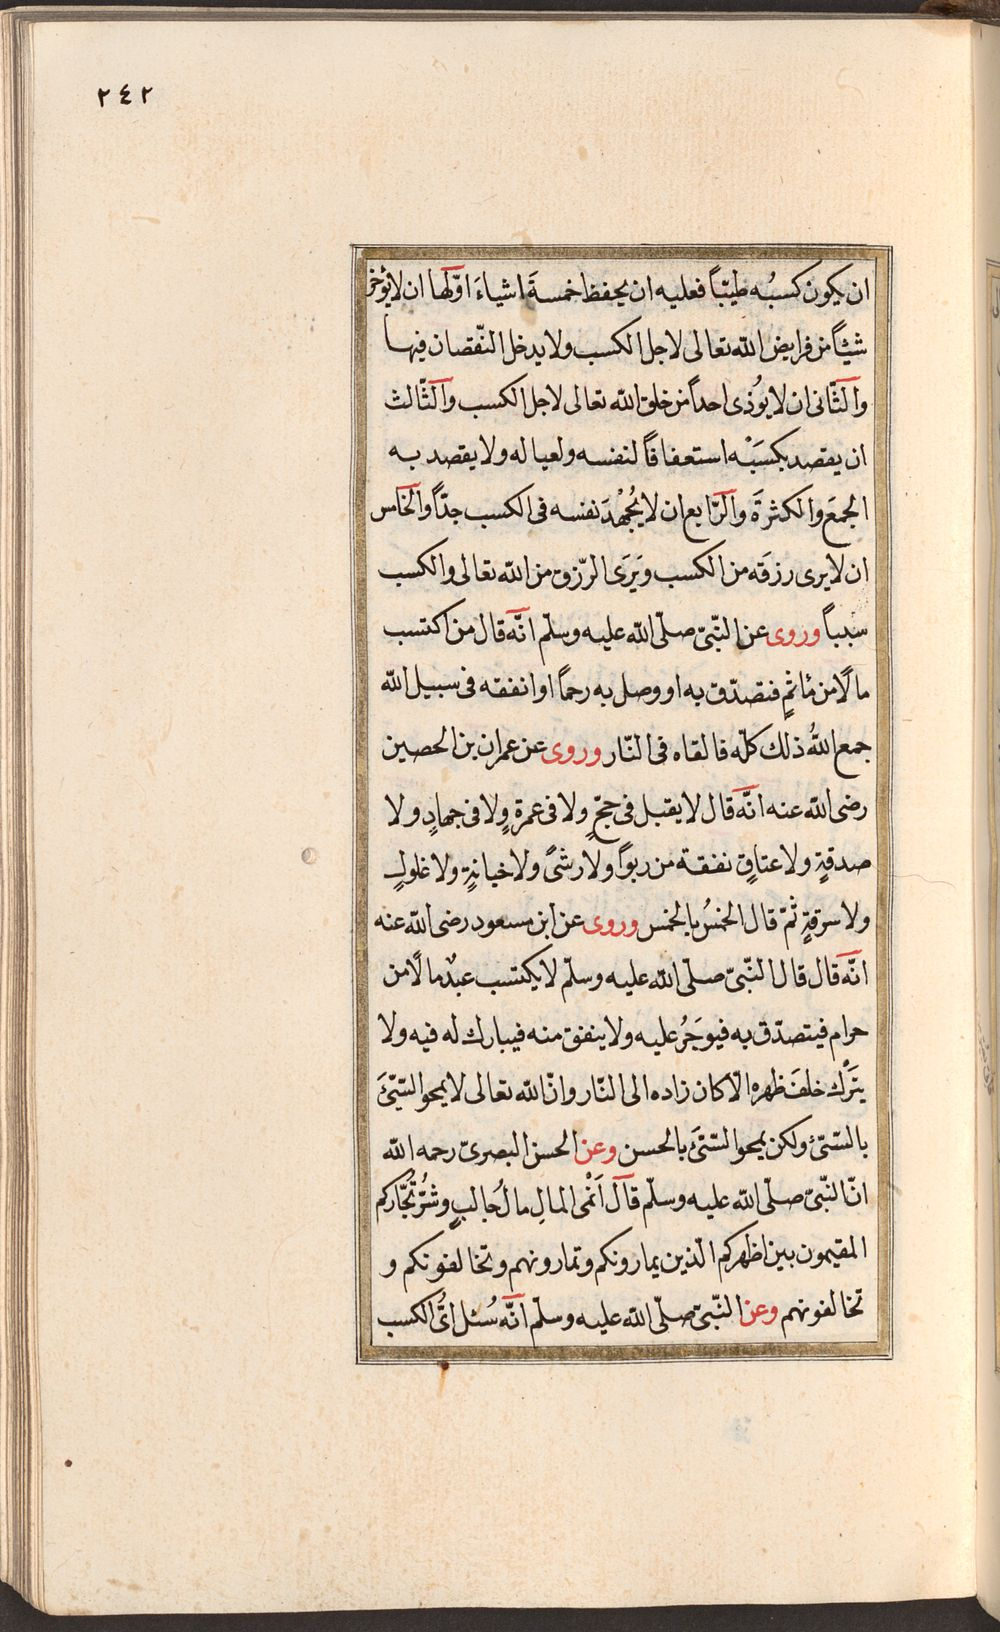 ٢٤٢
ان يكون كسبُه طيّباً فعليه ان يحفظ خمسةَ اشياءَ اوّلها ان لا يُؤخّر
شيئاً من فرايض الله تعالى لاجل الكسب ولا يدخل النّقصان فيها
والثّانى ان لا يُوُذى احداً من خلق الله تعالى لاجل الكسب والثّالث
ان يقصد بكسَبْه استعفافاً لنفسه ولعياله ولا يقصد به
الجمعَ والكثرةَ والرّابع ان لا يُجُهْدَ نفسه فى الكسب جدّاً والخامس
ان لا يرى رزقَه من الكسب ويَرَى الرّزق من الله تعالى والكسب
سبباً وروى عن النّبىّ صلّى الله عليه وسلّم انّه قال من اكتسب
مالًا من مأثمٍ فتصدّق به او وصل به رحماً او انفقه فى سبيل الله
جمع اللهُ ذلك كلّه فالقاه فى النّار وروى عن عمران بن الحصين
رضى الله عنه انّه قال لا يقبل فى حجّ ٍ ولا فى عمرةٍ ولا فى جهادٍ ولا
صدقةٍ ولا عتاقٍ نفقة من ربوًا ولا رشىً ولا خيانةٍ ولا غلولٍ
ولا سرقةٍ ثمّ قال الخمسُ بالخمس وروى عن ابن مسعود رضى الله عنه
انّه قال قال النّبىّ صلّى الله عليه وسلّم لا يكتسب عبدٌ مالًا من
حرام فيتصدّق به فيوجَرُ عليه ولا ينفق منه فيبارك له فيه ولا
يتَرْك خلفَ ظهره الّا كان زاده الى النّار وانّ الله تعالى لا يمحو السّيّئَ
بالسّيّئ ولكن يمحو السّيّئَ بالحسن وعن الحسن البصرىّ رحمه الله
انّ النّبىّ صلّى الله عليه وسلّم قال اَنْمى المالِ مالُ جالبٍ وشرُّ تُجّاركم
المقيمون بين اظهركم الّذين يمارونكم وتمارونهم وتخالفونكم و
تخالفونهم وعن النّبىّ صلّى الله عليه وسلّم انّه سُئل اىُّ الكسب